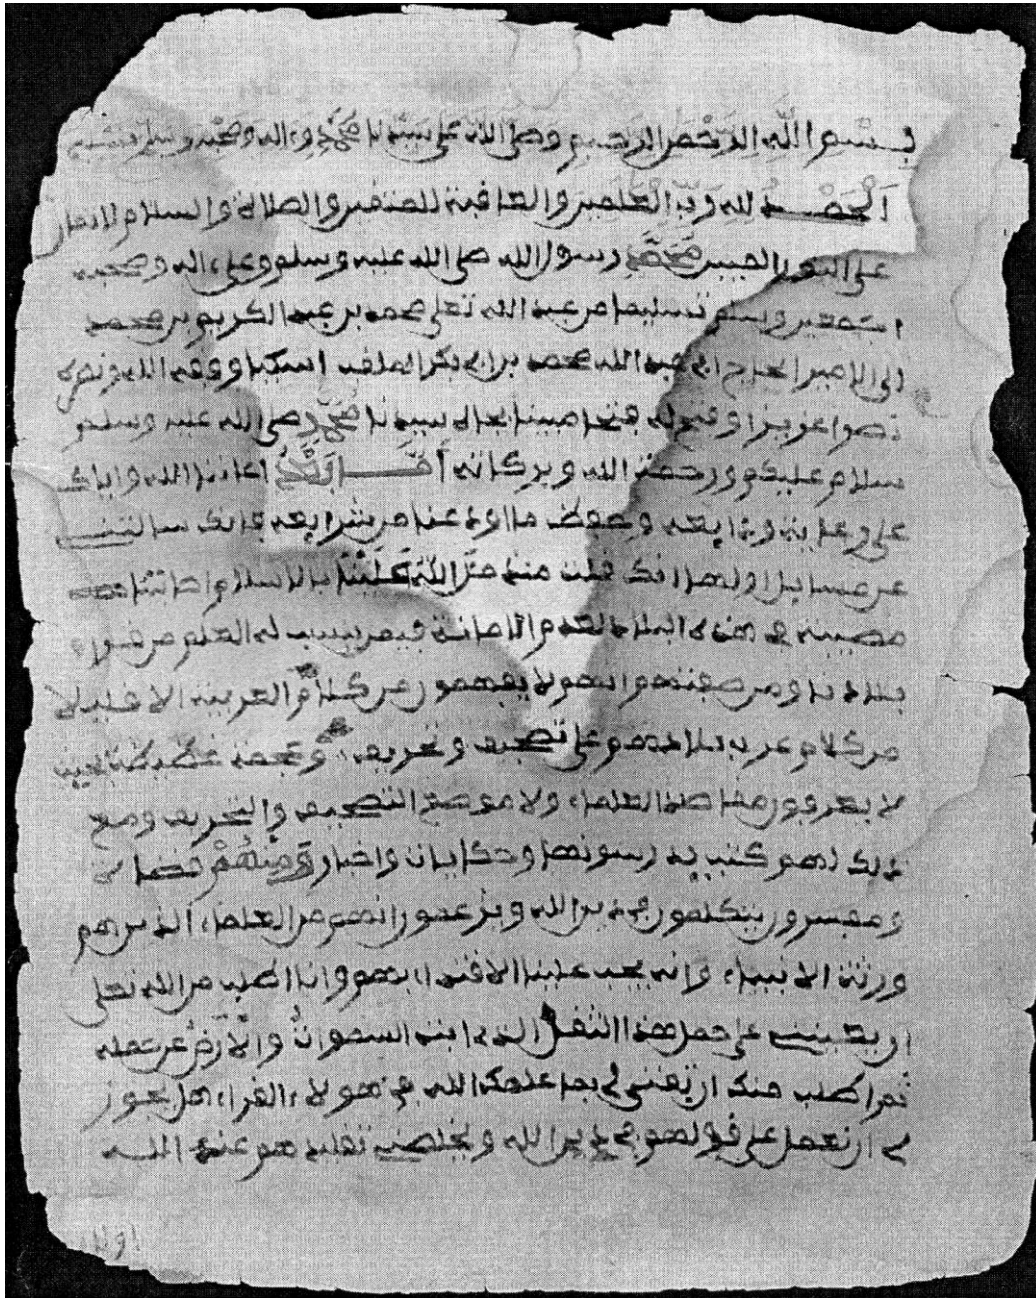 بسم الله الرحمن الرحيم وصلى الله على سيدنا محمد وءاله وصحبه وسلم تسليما
الحمد لله رب العلمين والعاقبة للمتقين والصلاة والسلام
على محمد رسول الله صلى الله عليه وسلم وعلى ءاله وصحبه
اجمعين ويسلم تسليما من عبد الله تعلى محمد بن عبد الكريم بن محمد
الى الامير الحاج ابى عبد الله محمد بن ابى بكر الملقب اسكيا ووفقه الله ونصره
نصرا عزيزا وفتح له فتحا مبينا بجاه سيدنا محمد صلى الله عليه وسلم
سلام عليكم ورحمت الله وبركاته اما بعد اعاننا الله واياك
على رعاية ودايعه وحفظ ما اودعنا من شرايعه فانك سالتنى
عن مسايل اولها انك قلت منذ من الله علينا بالاسلام اصابتنا
مصيبة فى هذه البلاد لعدم الامانة فيمن ينسب له العلم من قراء
بلادنا ومن صفتهم انهم لا يفهمون من كلام العربية الا قليلا
من كلام عرب بلادهم على تصحيف وتحريف وعجمة عظيمة بحيث
لا يعرفون مقاصد العلماء ولا موضع التصحيف والتحريف ومع
ذلك لهم كتب يدرسونها وحكايات واخبار ومنهم قضاة
ومفسرون يتكلمون فى دين الله ويزعمون انهم من العلماء الذين هم
ورثة الانبياء وانه يجب علينا الاقتداء بهم وانا اطلب من الله تعلى
ان يعيننى على حمل هذا الثقل الذى ابت السموات والارض عن حمله
ثم اطلب منك ان تفتى لى بما علمك الله فى هولاء القراء هل يجوز
لى ان نعمل على قولهم فى دين الله ويخلصنى تقليدهم عند الله